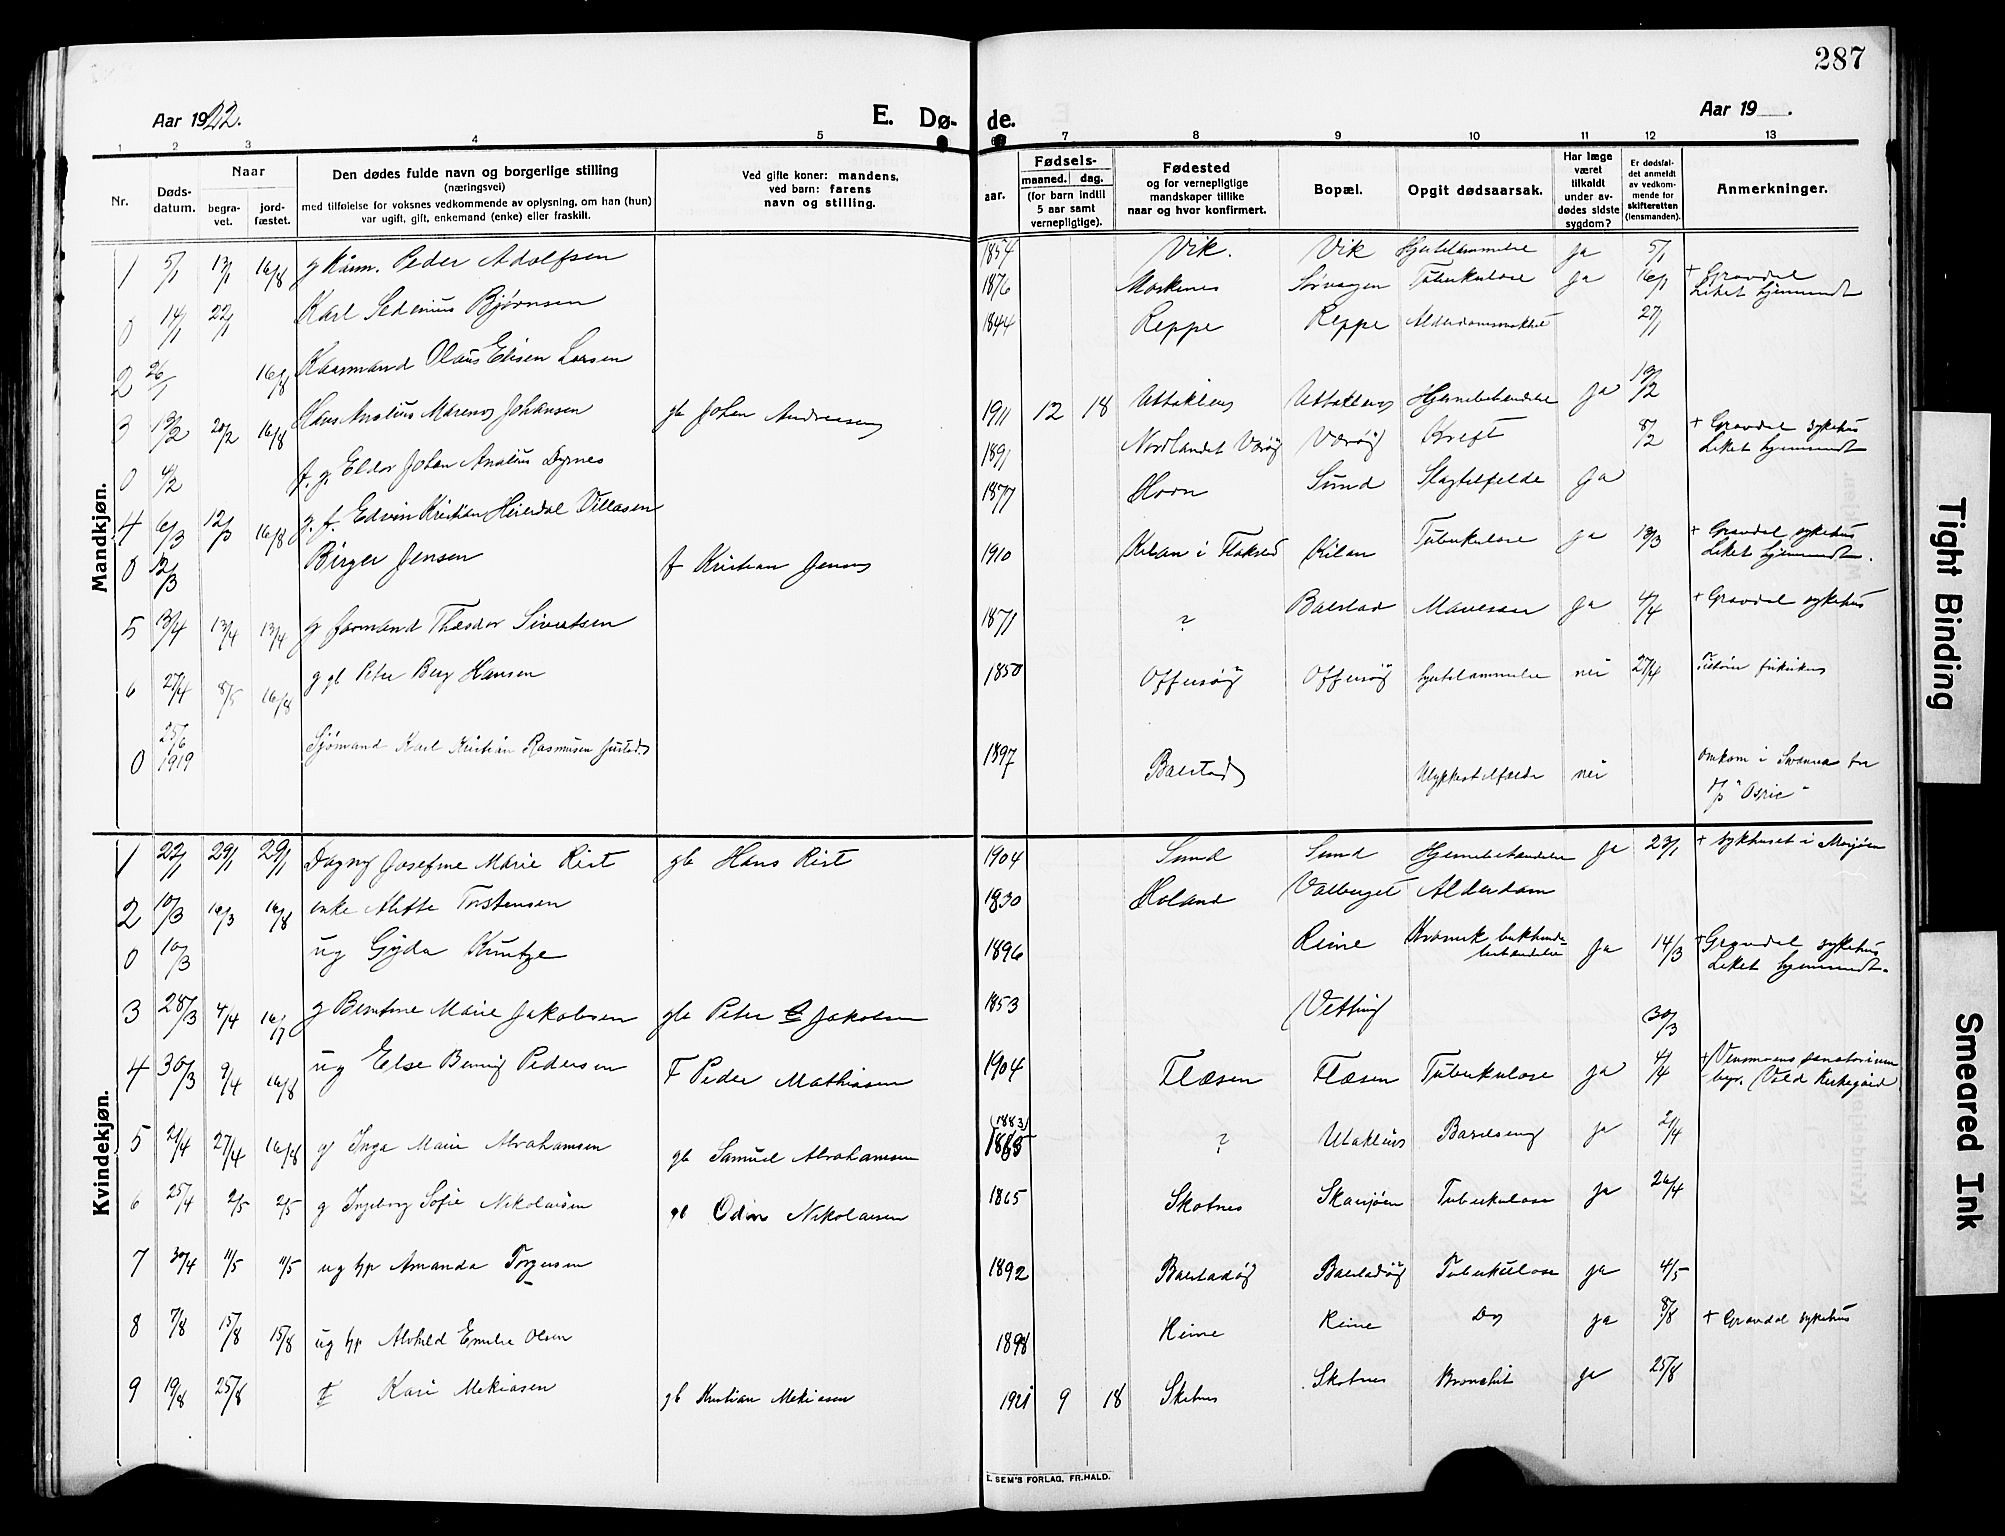 287
Aar 1922.
E. Dø-
de.
Aar 19
1 2 3 4 5 6 7 8 9 10 11 12 13
Nr.
Døds-
datum.
Naar
begra-
vet.
jord-
fæstet.
Den dødes fulde navn og borgerlige stilling
(næringsvei)
med tilføielse for voksnes vedkommende av oplysning, om han (hun)
var ugift, gift, enkemand (enke) eller fraskilt.
Ved gifte koner: mandens,
ved barn: farens
navn og stilling.
Fødsels-
aar.
maaned. dag.
(for barn indtil
5 aar samt
vernepligtige).
Fødested
og for vernepligtige
mandskaper tillike
naar og hvor konfirmert.
Bopæl.
Opgit dødsaarsak.
Har læge
været
tilkaldt
under av-
dødes sidste
sygdom?
Er dødsfal-
det anmeldt
av vedkom-
mende for
skifteretten
(lensmanden).
Anmerkninger.
Mandkjøn.
1 5/1 13/1 16/8 g Kårm. Peder Adolfsen 1854 Vik. Vik Hjertelammelse Ja 5/1
0 14/1 22/1 Karl Sedenius Bjørnsen 1876 Moskenes Sørvaagen Tuberkulose Ja 16/1 + Gravdal
Liket hjemsendt
2 26/1 16/8 Kaarmand Olaus Elisen Larsen 1844 Reppe Reppe 27/1
3 13/2 20/2 16/8 Hans Analius Marenus Johansen gb Johan Andreasen 1911 12 18 Uttakleiv Uttakleiv Hjernebetændelse Ja
0 4/2 f. g. Eldor Johan Analius Dyrnes 1891 Nordlandet Værøy Værøy Kreft 8/2 + Gravdal sykehus
Liket hjemsendt
4 6/3 12/3 16/8 g. f. Edvin Kristian Heierdal Villasen 1877 Horn Sund Slagtilfelde Ja
0 12/3 Birger Jensen f Kristian Jensen 1910 Kilan i Flakstad Kilan Tuberkulose Ja 13/3 + Gravdal sykehus
Liket hjemsendt.
5 3/4 13/4 13/4 g jarmand Theodor Sivertsen 1871 ? Balstad Mavesaar Ja 4/4 + Gravdal sykehus
6 27/4 8/5 16/8 g gb Peter Berg Hansen 1850 Offersøy Offersøy hjertelammelse nei 27/4
0 25/6
1919 Sjømand Karl Kristian Rasmusen 1897 Balstad Ulykkestilfælde nei omkom i
D/s "Osric"
Kvindekjøn.
1 22/1 29/1 29/1 Dagny Josefine Marie Rist gb Hans Rist 1904 Sund Sund Hjernebetændelse Ja 23/1 + sykhuset i Mosjøen
2 10/3 16/3 16/8 enke Alette Torstensen 1830 Holand Valberget Alderdom
0 10/3 ug Gyda Kuntze 1896 Reine Kronisk bukhinde-
betændelse Ja 14/3 + Gravdal sykehus
Liket hjemsendt.
3 28/3 4/4 g Berntine Marie Jakobsen gb Peter Jakobsen 1853 Vetting 30/3
4 30/3 9/4 16/8 ug Else Benny Pedersen F Peder Mathiasen 1904 Flæsen Flæsen Tuberkulose Ja 4/4 + Vensmoens sanatorium
begr. Vold Kirkegård
5 21/4 27/4 16/8 g Inga Marie Abrahamsen gb Samuel Abrahamsen (1883) 1885 ? Utakleiv Barselseng Ja 21/4
6 25/4 2/5 2/5 g Ingeborg Sofie Nikolaisen gb Odin Nikolaisen 1865 Skotnes Skarsjøen Tuberkulose Ja 26/4
7 30/4 11/5 11/5 ug hp Amanda Torgersen 1892 Balstadøy Balstadøy Tuberkulose Ja 4/5
8 7/8 15/8 15/8 ug hp Alvhild Emilie Olsen 1898 Reine Reine Do Ja 8/8 + Gravdal sykehus
9 19/8 25/8 Kari Mekiasen gb Kristian Mekiasen 1921 9 18 Skotnes Skotnes Bronchit Ja 25/8
E. SEM'S FORLAG, FR.HALD.
Tight Binding
Smeared Ink